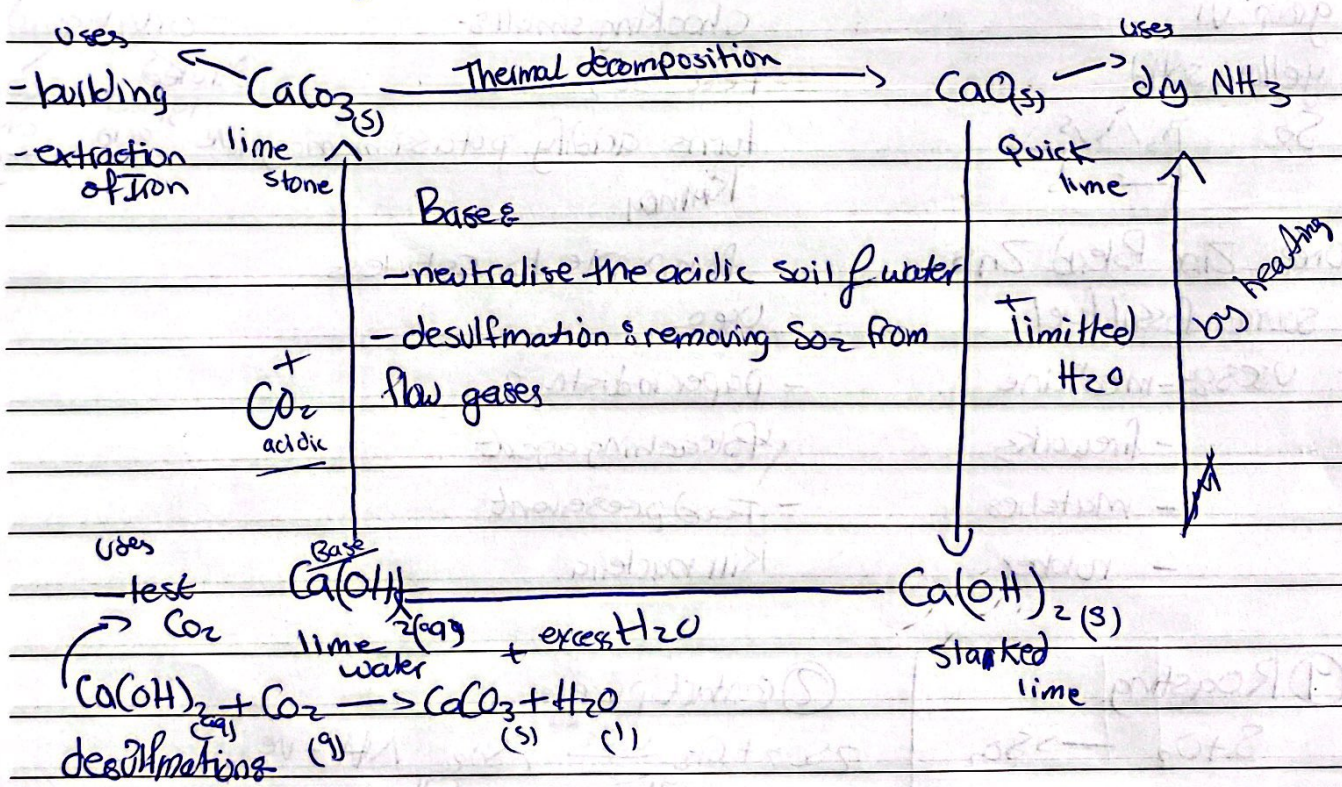 uses
- building
- extraction of Iron
CaCo3(s)
lime stone
Thermal decomposition
CaO(s)
Quick lime
uses
dry NH3
Base:
- neutralise the acidic soil & water
- desulfmation : removing SO2 from
flow gases
+
CO2
acidic
+
limitted
H2O
by heating
uses
- test
CO2
Base
Ca(OH)2(aq)
lime water
+ excess H2O
Ca(OH)2(s)
slaked
lime
Ca(OH)2(aq) + CO2(g) -> CaCO3(s) + H2O(l)
desulfmation: